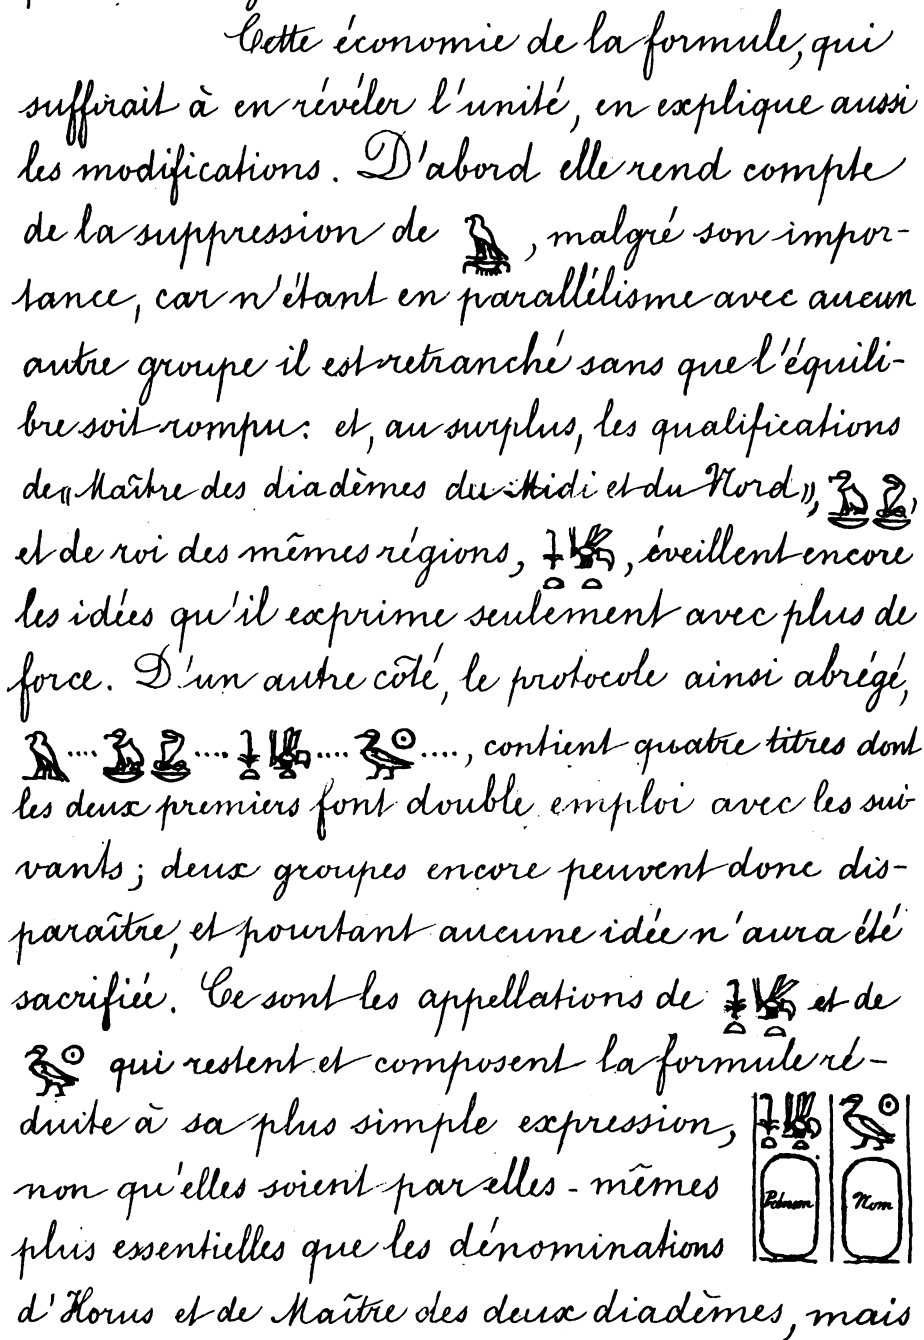 Cette économie de la formule, qui
suffirait à en révéler l'unité, en explique aussi
les modifications. D'abord elle rend compte
de la suppression de 𓅉, malgré son impor-
tance, car n'étant en parallélisme avec aucun
autre groupe il est retranché sans que l'équili-
bre soit rompu: et, au surplus, les qualifications
de « Maître des diadèmes du Midi et du Nord », 𓅒,
et de roi des mêmes régions, 𓇓𓏏𓆤𓏏, éveillent encore
les idées qu'il exprime seulement avec plus de
force. D'un autre côté, le protocole ainsi abrégé,
𓅃....𓅒....𓇓𓏏𓆤𓏏....𓅭𓇳...., contient quatre titres dont
les deux premiers font double emploi avec les sui-
vants; deux groupes encore peuvent donc dis-
paraître, et pourtant aucune idée n'aura été
sacrifiée. Ce sont les appellations de 𓇓𓏏𓆤𓏏 et de
𓅭𓇳 qui restent et composent la formule ré-
duite à sa plus simple expression, 𓇓𓏏𓆤𓏏 𓅭𓇳
non qu'elles soient par elles-mêmes Prénom Nom
plus essentielles que les dénominations
d'Horus et de Maître des deux diadèmes, mais